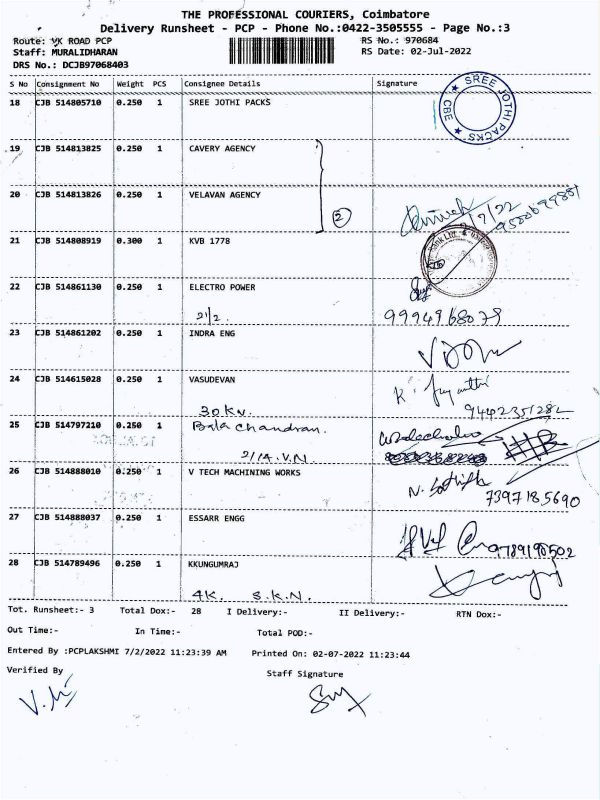 THE PROFESSIONAL COURIERS, Coimbatore
Delivery Runsheet - PCP - Phone No.:0422-3505555 - Page No.:3
Route: VK ROAD PCP RS No.: 970684
Staff: MURALIDHARAN RS Date: 02-Jul-2022
DRS No.: DCJB97068403
S No Consignment No Weight PCS Consignee Details Signature
18 CJB 514805710 0.250 1 SREE JOTHI PACKS
SREE JOTHI PACKS CBE
19 CJB 514813825 0.250 1 CAVERY AGENCY
20 CJB 514813826 0.250 1 VELAVAN AGENCY
2
21 CJB 514808919 0.300 1 KVB 1778
22 CJB 514861130 0.250 1 ELECTRO POWER
21/2. 9994968079
23 CJB 514861202 0.250 1 INDRA ENG
24 CJB 514615028 0.250 1 VASUDEVAN
30 KV. 9442351282
25 CJB 514797210 0.250 1 Bala Chandran.
2/1A.V.N
26 CJB 514888010 0.250 1 V TECH MACHINING WORKS
7397185690
27 CJB 514888037 0.250 1 ESSARR ENGG
9789190502
28 CJB 514789496 0.250 1 KKUNGUMRAJ
4K. S.K.N.
Tot. Runsheet:- 3 Total Dox:- 28 I Delivery:- II Delivery:- RTN Dox:-
Out Time:- In Time:- Total POD:-
Entered By :PCPLAKSHMI 7/2/2022 11:23:39 AM Printed On: 02-07-2022 11:23:44
Verified By Staff Signature